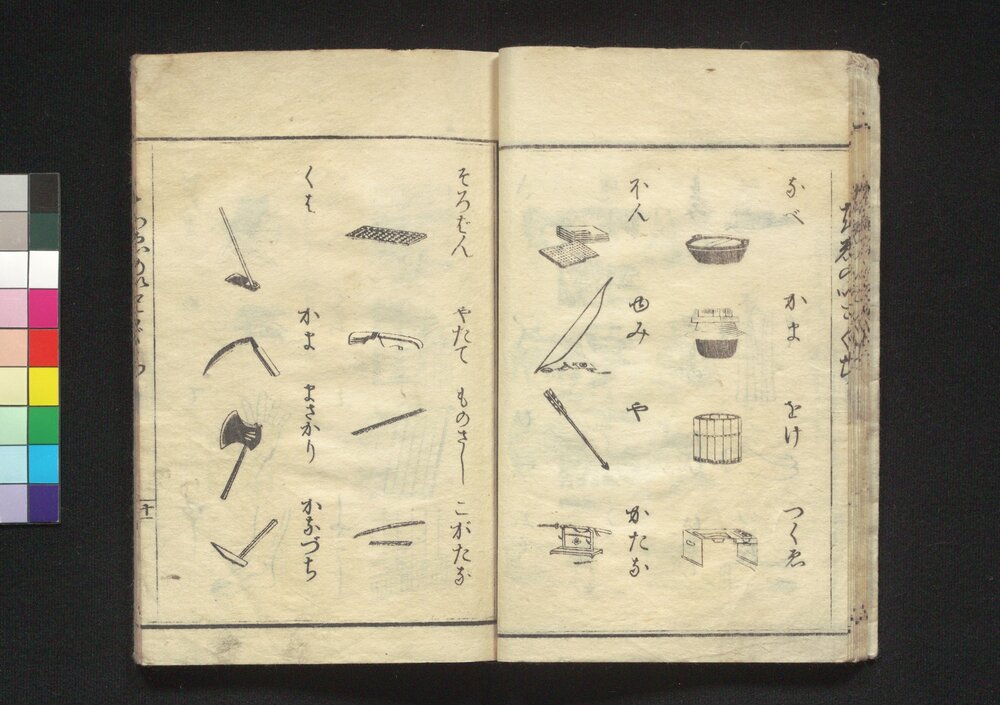 なべ
かま
をけ
つくゑ
ほん
ゆみ
や
かたな
そろばん
やたて
ものさし
こがたな
くは
かま
まさかり
かなづち
十一